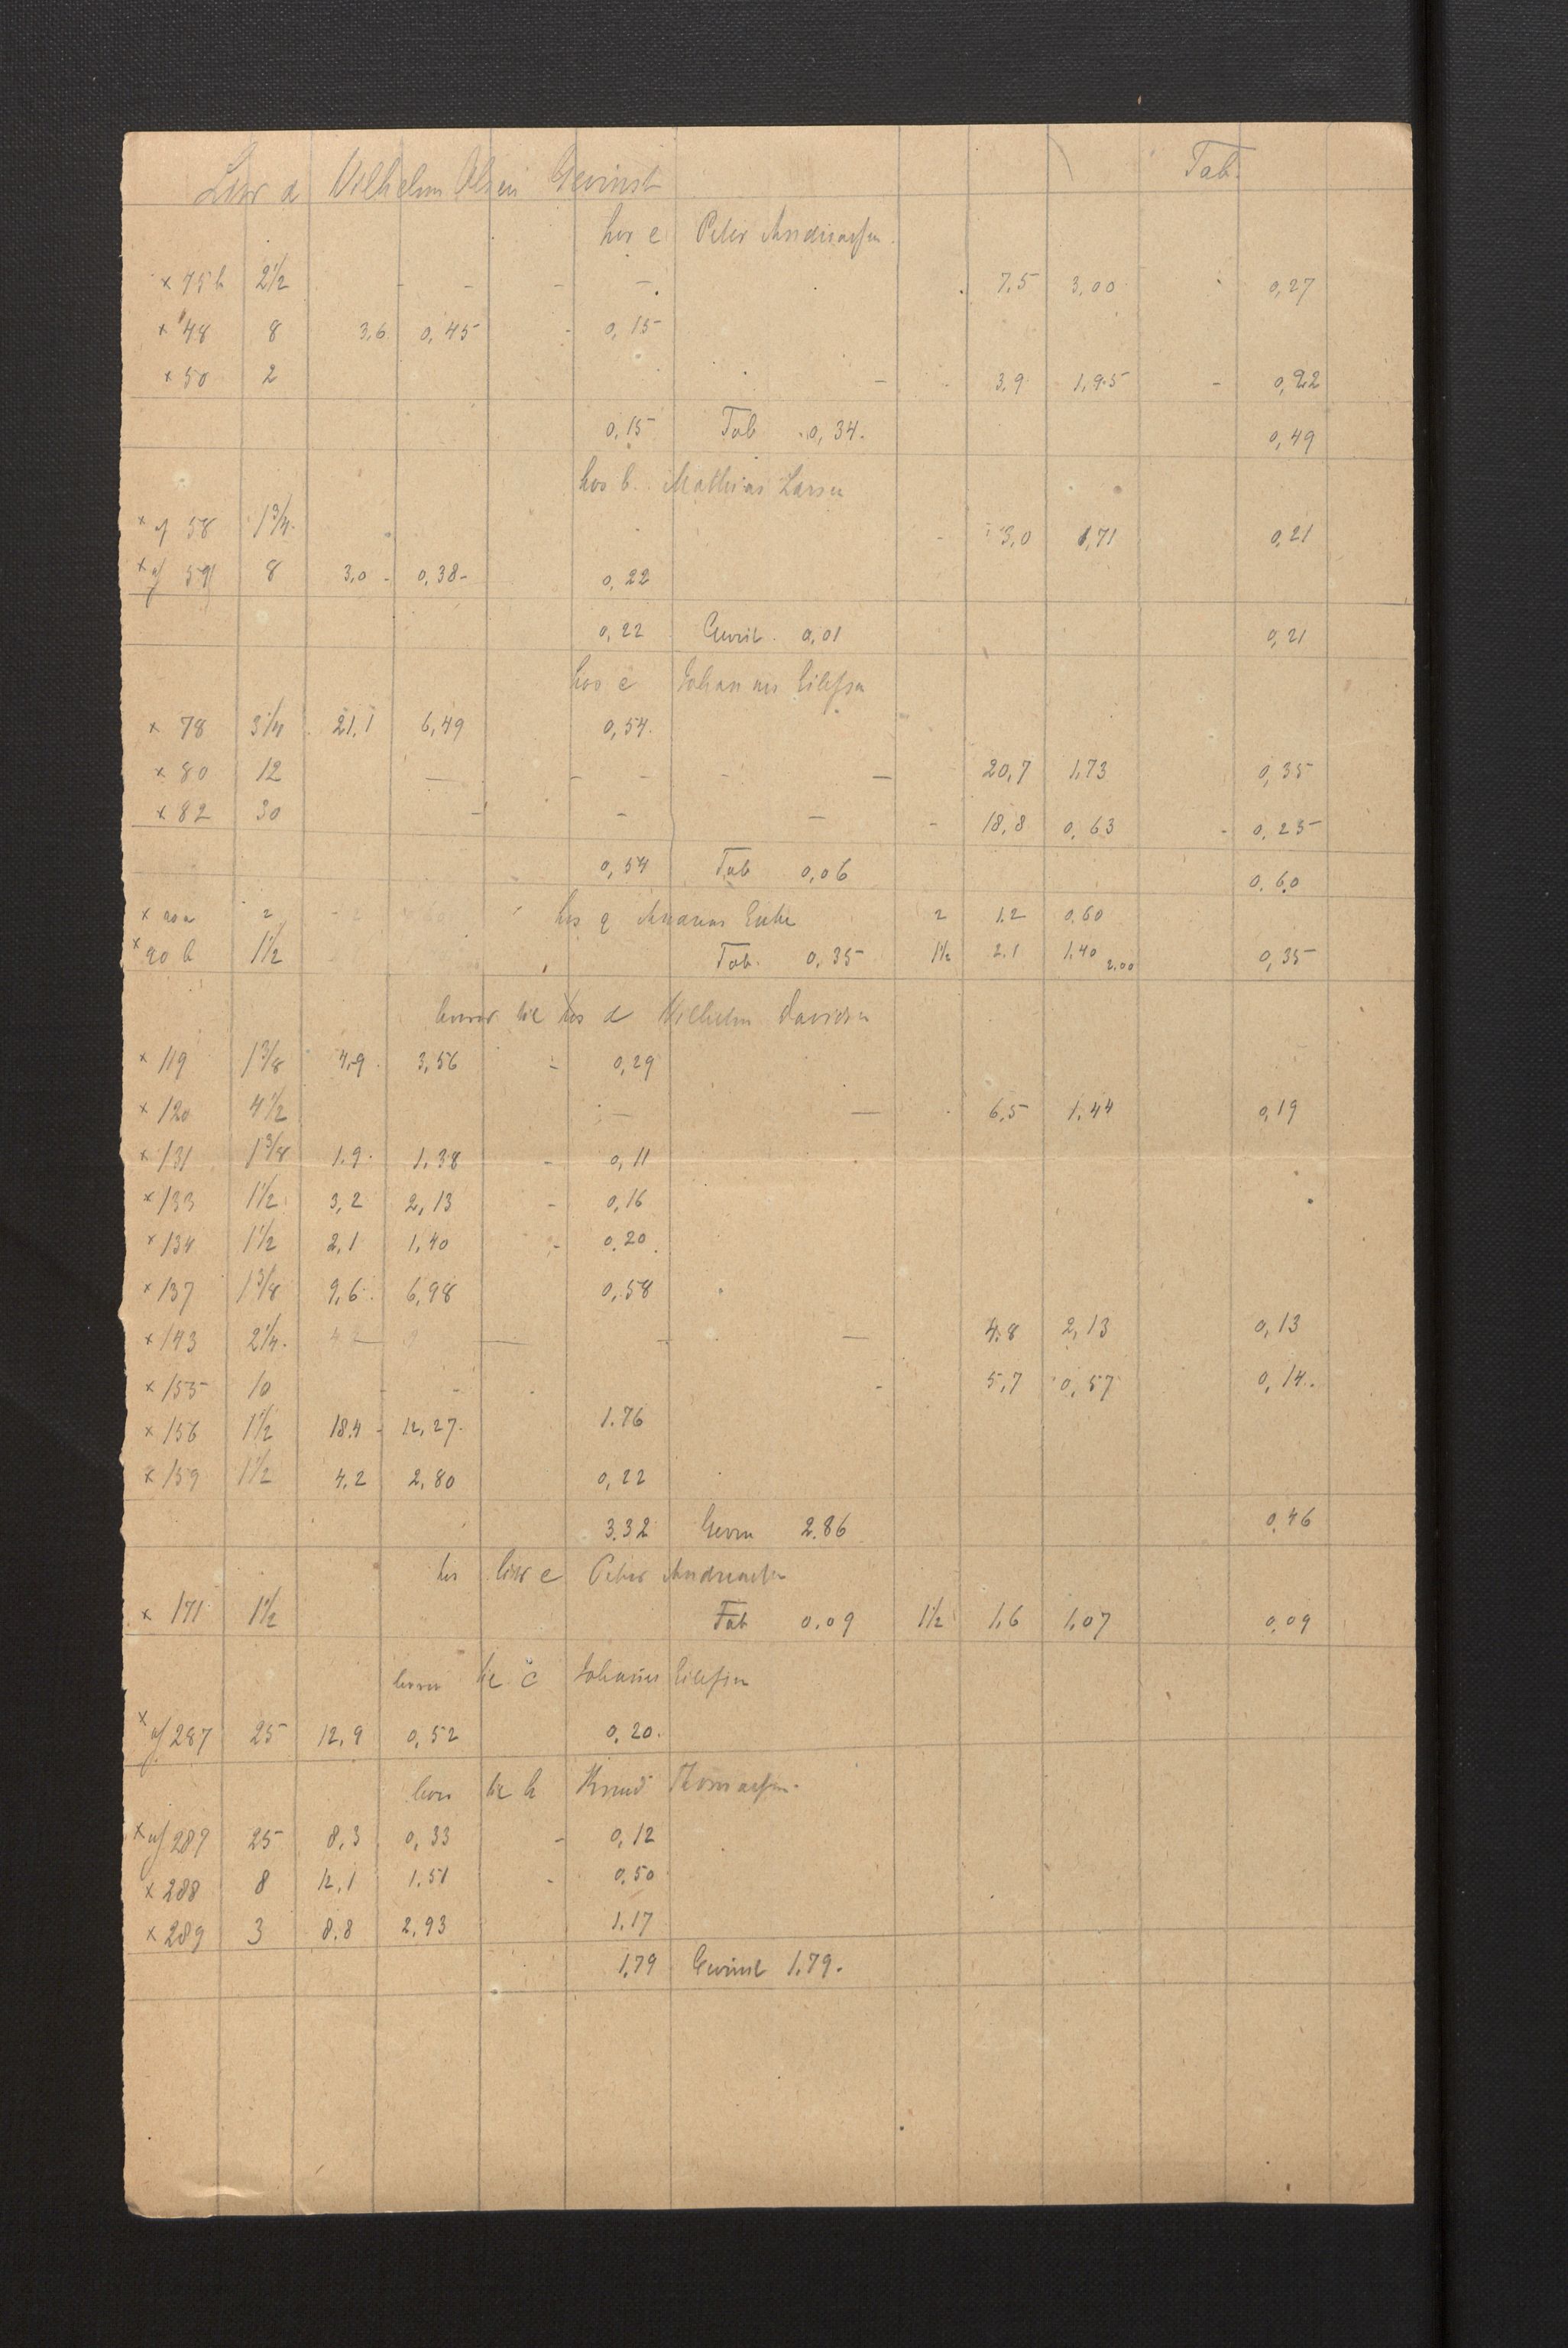 Litr d Vilhelm Olsen Gevinst Tab.
hos e Peter Andreassen.
x 75 b 2 1/2 - - - - 7,5 3,00 0,27
x 48 8 3,6 0,45 - 0,15
x 50 2 - 3,9 1,95 - 0,22
0,15 Tab 0,34. 0,49
hos b. Mathias Larsen
x af 58 1 3/4 - 3,0 1,71 0,21
x af 59 8 3,0 - 0,38 - 0,22
0,22 Gevinst. 0,01 0,21
hos c Johannes Eilefsen
x 78 3 1/4 21,1 6,49 0,54.
x 80 12 — - - - — 20,7 1,73 0,35
x 82 30 - - — - 18,8 0,63 - 0,25
0,54 Tab 0,06 0,60
x 90 a 2 hos g 2 1,2 0,60
x 90 b 1 1/2 Tab. 0,35 1 1/2 2,1 1,40 2,00 0,35
d Vilhelm Davidsen
x 119 1 3/8 4,9 3,56 - 0,29
x 120 4 1/2 — — 6,5 1,44 0,19
x 131 1 3/8 1,9. 1,38 - 0,11
x 133 1 1/2 3,2 2,13 - 0,16
x 134 1 1/2 2,1 1,40 - 0,20.
x 137 1 3/8 9,6. 6,98 0,58
x 143 2 1/4. — - — 4,8 2,13 0,13
x 155 10 - - - - 5,7 0,57 0,14.
x 156 1 1/2 18,4 - 12,27. 1.76
x 159 1 1/2 4,2 2,80 0,22
3.32 Gevin 2.86 0,46
hos litr e Peter Andreassen
x 171 1 1/2 Tab 0,09 1 1/2 1,6 1,07 0,09
c Johannes Eilefsen
x af 287 25 12,9 0,52 0,20.
h Knud Thomassen.
x af 287 25 8,3 0,33 - 0,12
x 288 8 12,1 1,51 - 0,50
x 289 3 8.8 2,93 1.17
1,79 Gevinst 1.79.